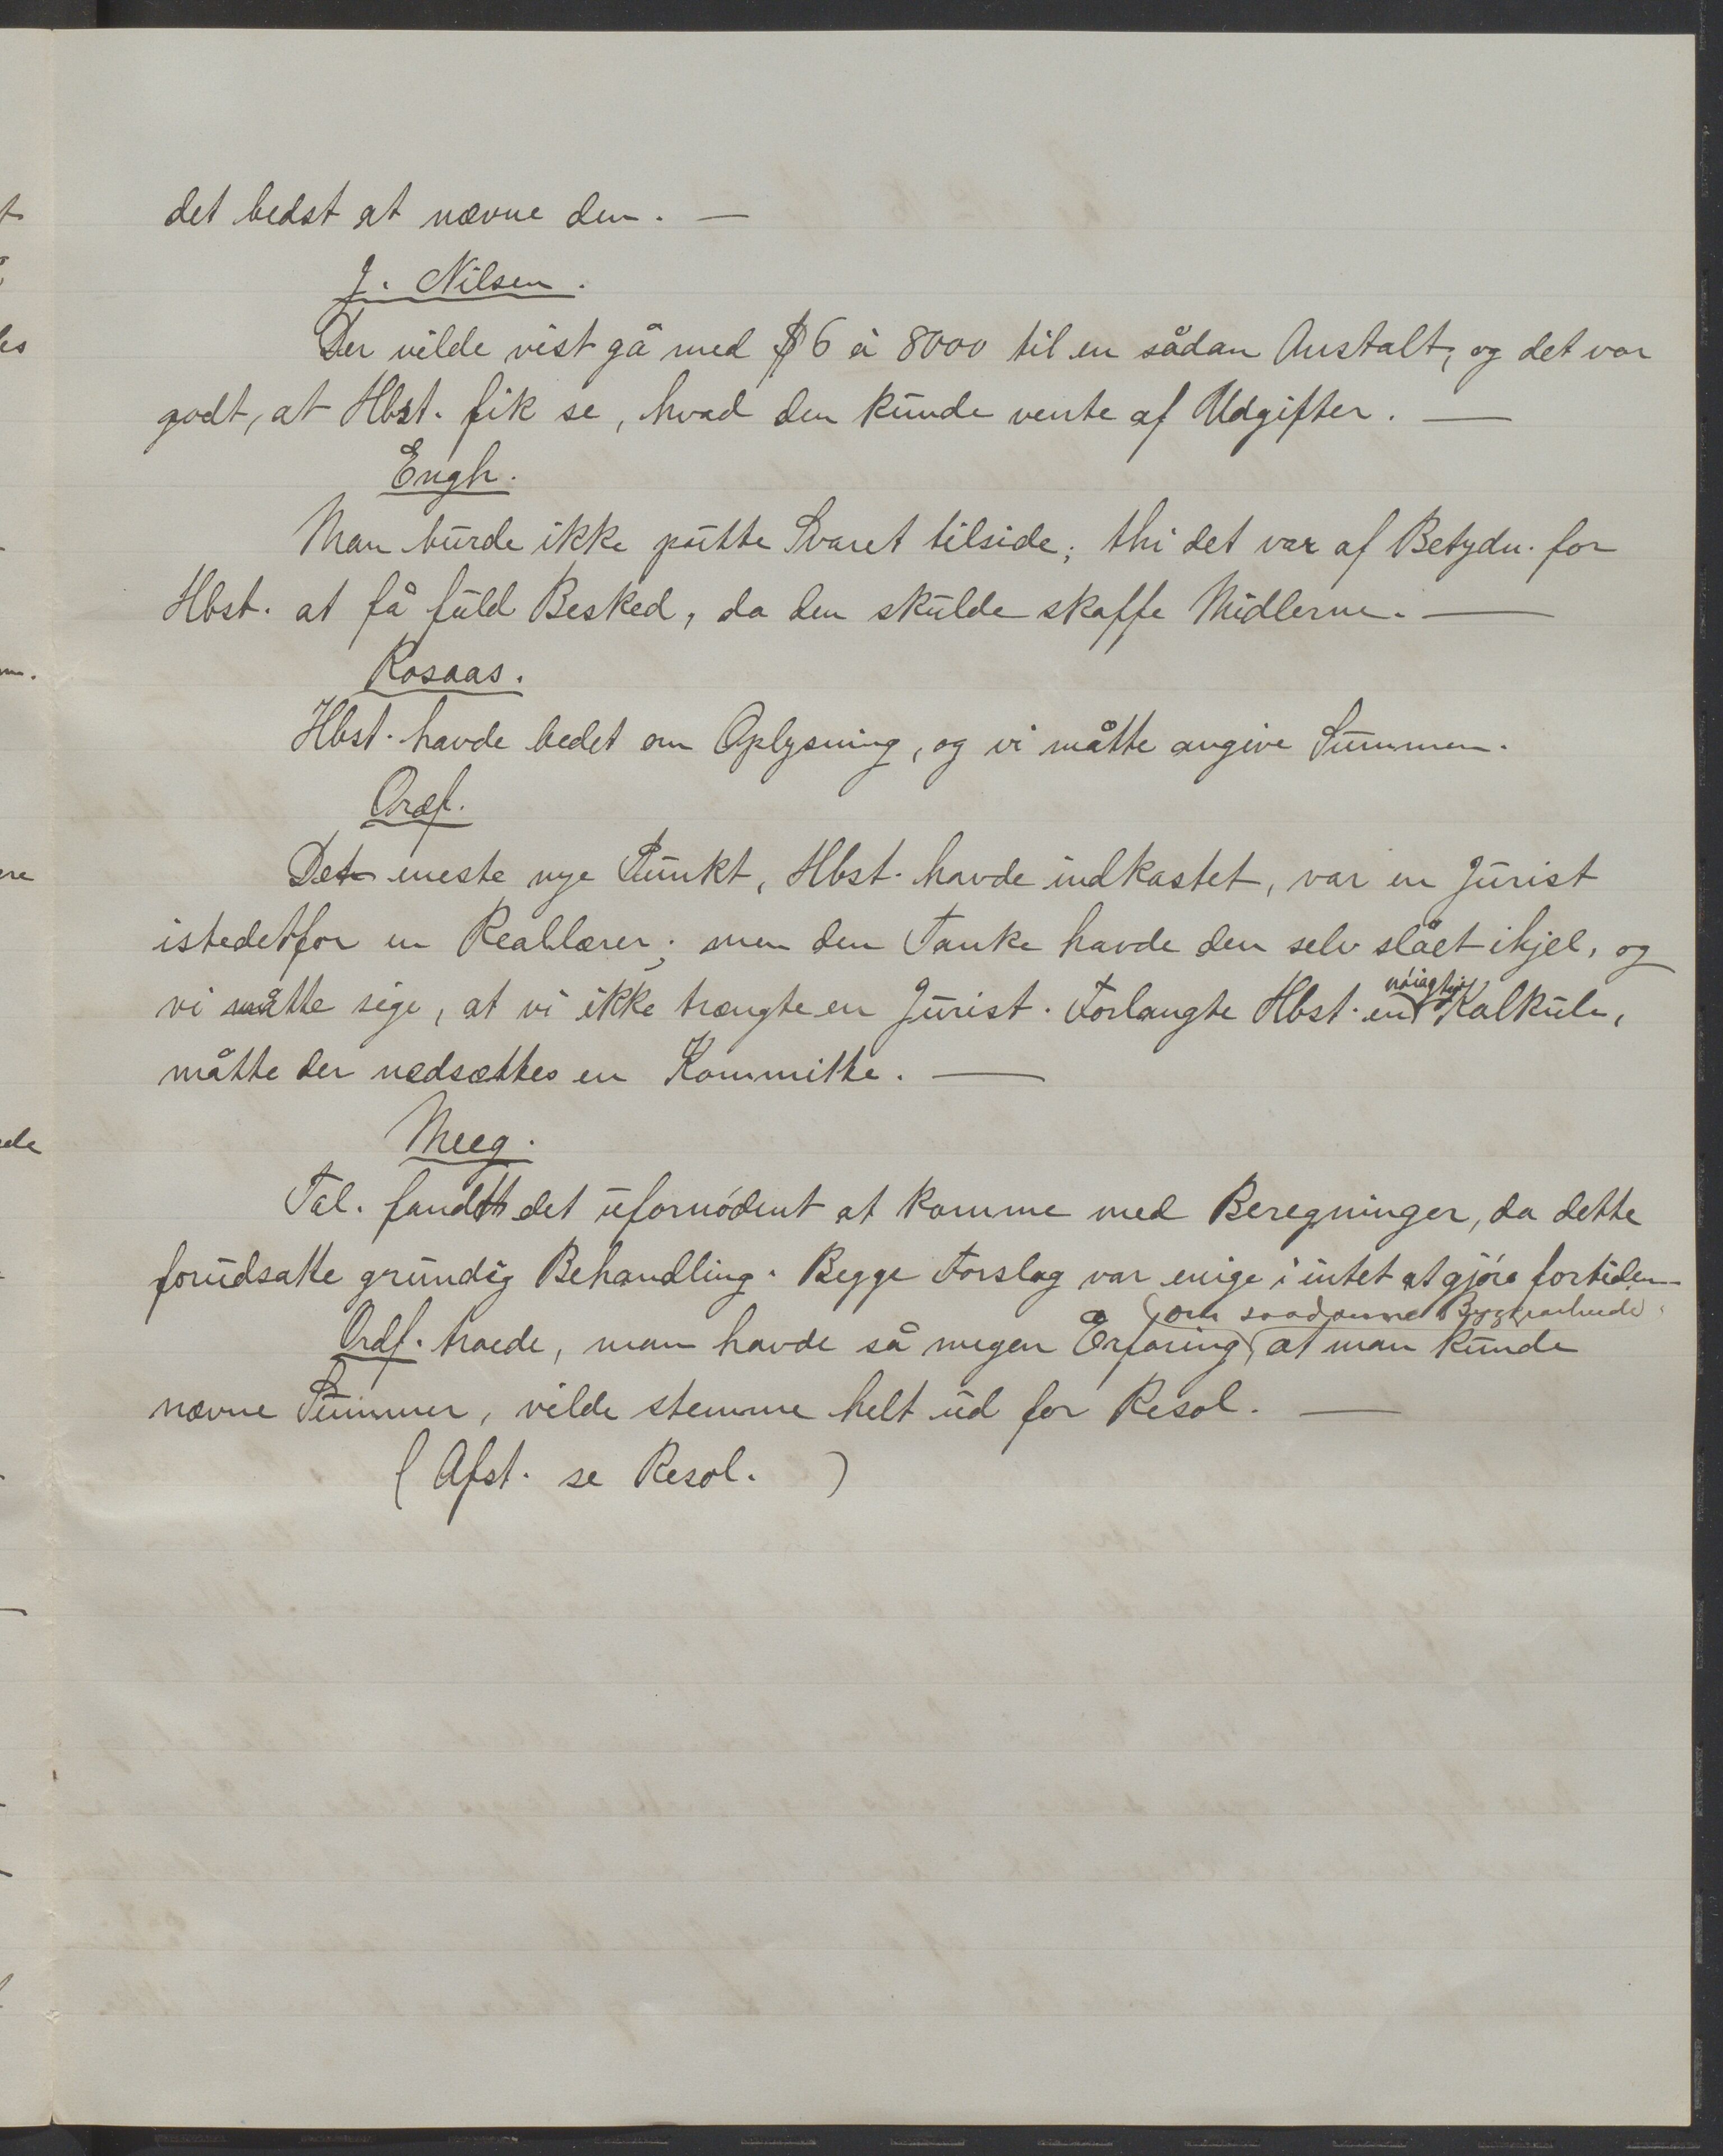 det bedst at nævne den. —
J. Nilsen.
Der vilde vist gå med $ 6 à 8000 til en sådan Anstalt, og det var
godt, at Hbst. fik se, hvad den kunde vente af Udgifter. —
Engh.
Man burde ikke putte Svaret tilside; thi det var af Betydn. for
Hbst. at få fuld Besked, da den skulde skaffe Midlerne. —
Rosaas.
Hbst. havde bedet om Oplysning, og vi måtte angive Summen.
Ordf.
Det eneste nye Punkt, Hbst. havde indkastet, var en Jurist
istedetfor en Reallærer; men den Tanke havde den selv slået ihjel, og
vi måtte sige, at vi ikke trængte en Jurist. Forlangte Hbst. en nöiagtig Kalkule,
måtte der nedsættes en Kommitte. —
Meeg.
Tal. fandt det ufornödent at komme med Beregninger, da dette
forudsatte grundig Behandling. Begge Forslag var enige i intet at gjöre fortiden
om saadanne
Ordf. troede, man havde så megen Erfaring, at man kunde
nævne Summer, vilde stemme helt ud for Resol. —
( Afst. se Resol. )